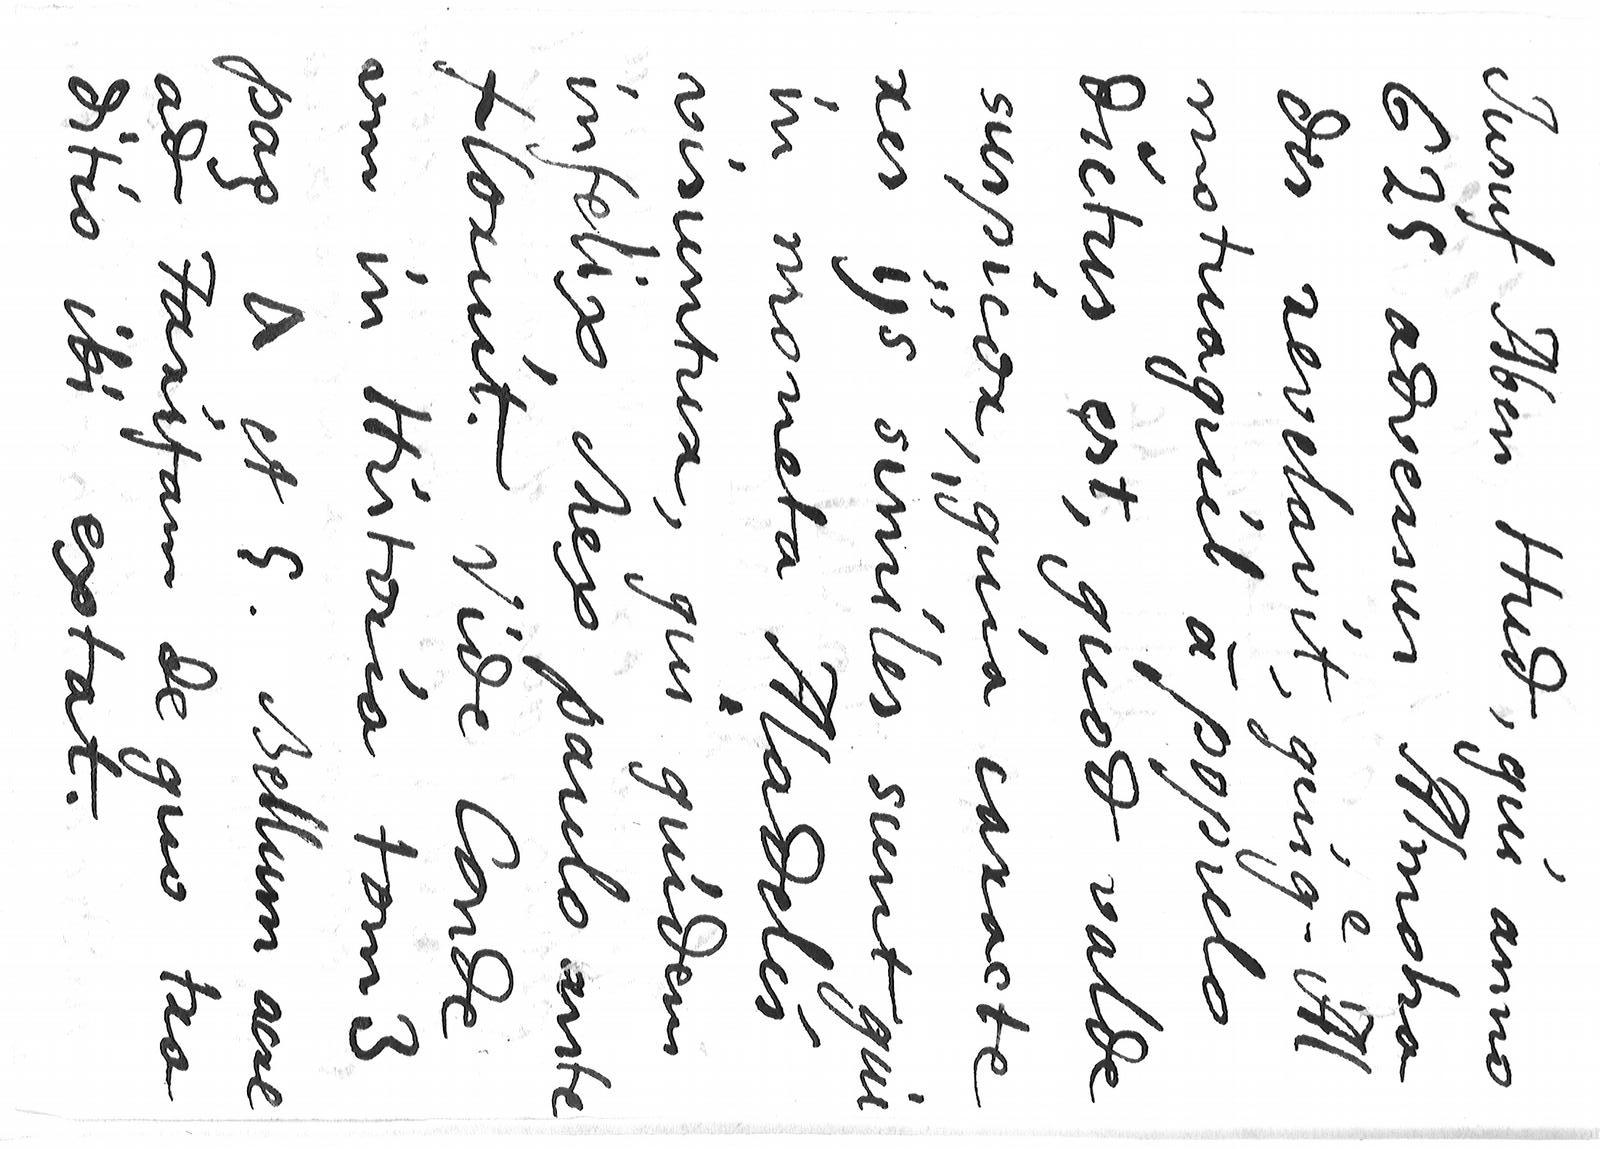 Iusuf Aben Hud, qui anno
625 adversus Almoha
des revelavit, quiq-e Al
motuaquil a pppulo
dictus est, quod valde
suspicor, quia caracte
res ijs similes sunt qui
in moneta Aladelis
visuntur, qui quidem
infelix Rex paulo ante
floruit. Vide Conde
em in Historia tom 3
pag 1 et 5. Bellum acce
ad Tarifam de quo tra
ditio ibi extat.